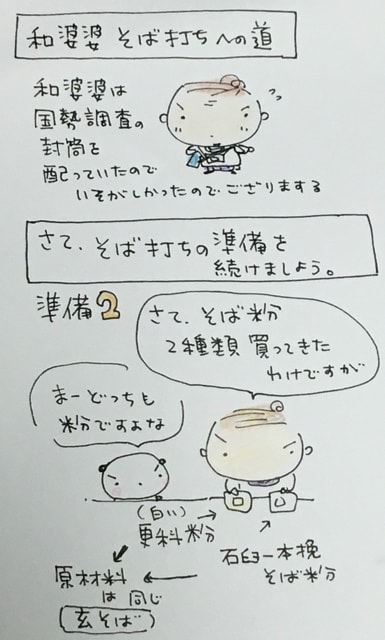 和婆婆 そば打ちへの道
和婆婆は
国勢調査の
封筒を
配っていたので
いそがしかったのでござりまする
さて、そば打ちの準備を
続けましょう。
準備2
さて、そば粉
2種類 買ってきた
わけですが
まーどっちも
粉ですよな
(白い)
更科粉
石臼一本挽
そば粉
原材料
は 同じ
玄そば